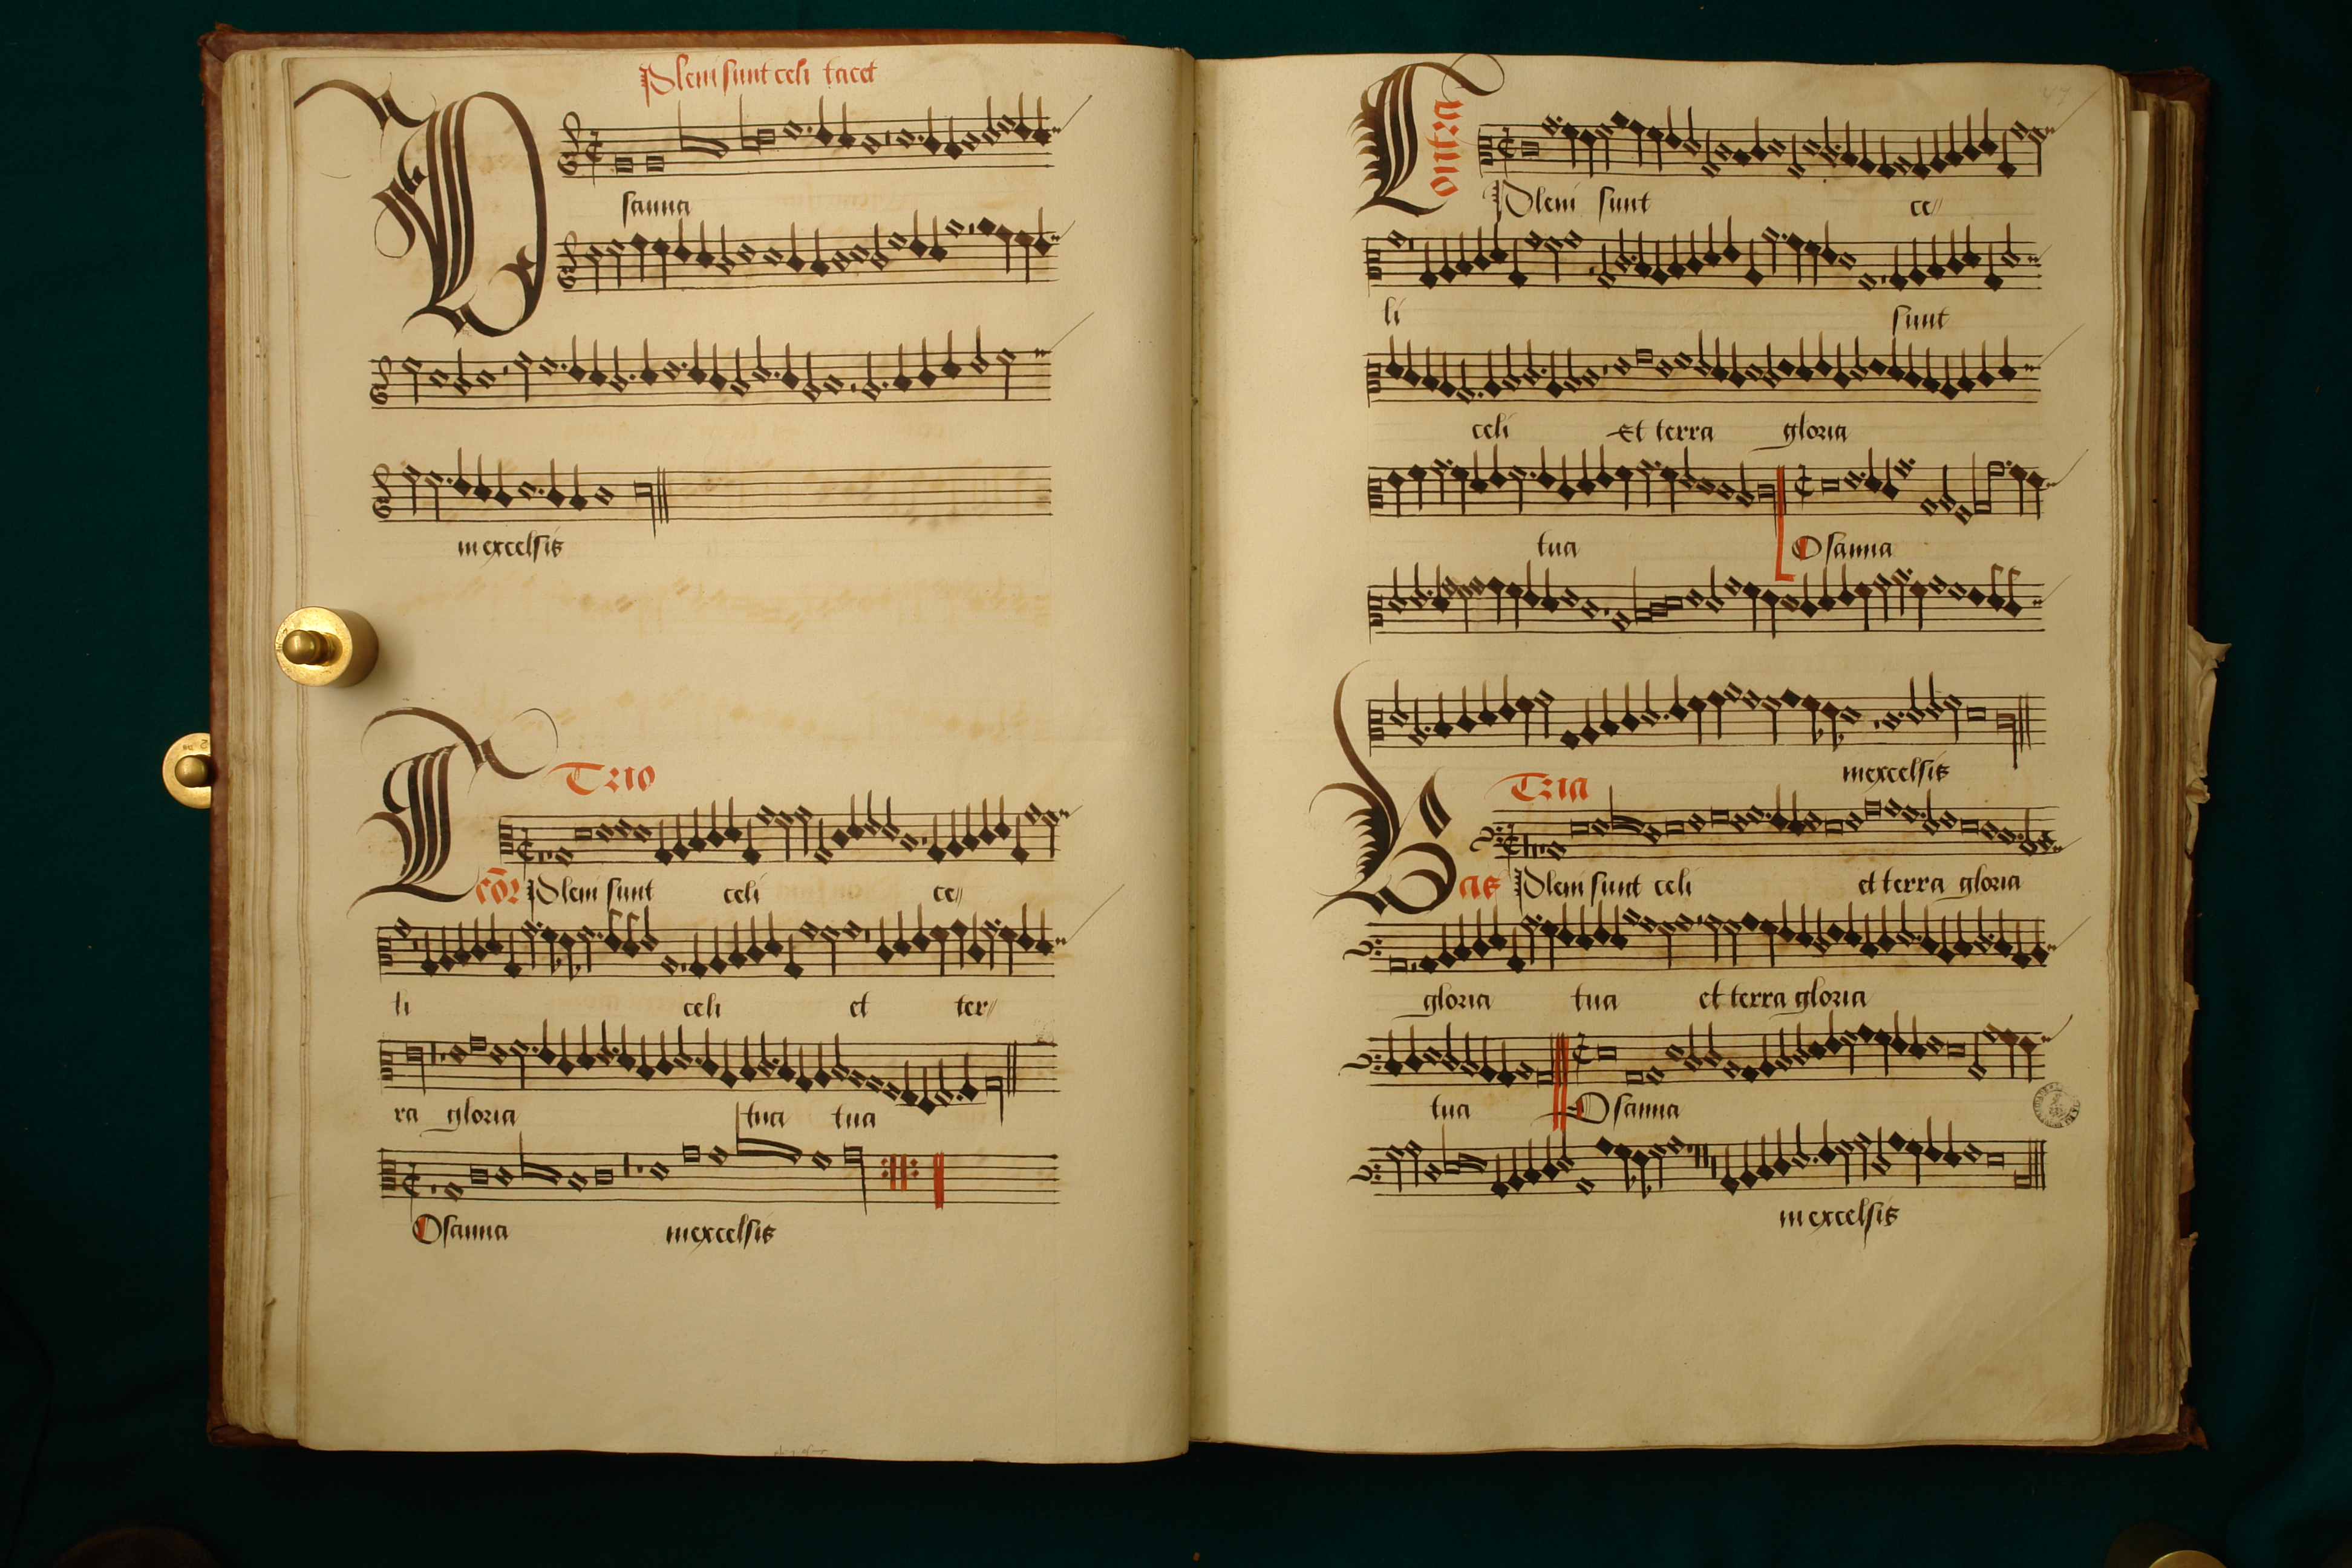 Pleni sunt celi tacet
Osanna
in excelsis
Trio
Pleni sunt celi ce//
li celi et ter//
ra gloria tua tua
Osanna in excelsis
47
Contra
Pleni sunt ce//
li sunt
celi Et terra gloria
tua Osanna
in excelsis
Tria
Bas Pleni sunt celi et terra gloria
gloria tua et terra gloria
tua Osanna
in excelsis